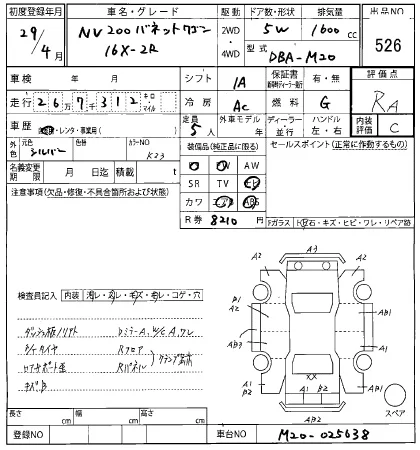 初度登録年月 車名・グレード 駆動 ドア数・形状 排気量 出品NO
29/4月 NV200バネットワゴン 16X-2R 2WD 4WD 5W 1600cc 526
型式 DBA-M20
車検 年 月 シフト IA 保証書 有・無 評価点
走行 267312 キロ マイル 冷房 AC 燃料 G RA
車歴 レンタ・事業用 定員 5人 外車モデル年 ディーラー 並行 ハンドル 左・右 内装評価 C
外色 元色 シルバー 色替 カラーNO K23 装備品(純正品に限る) セールスポイント(正常に作動するもの)
名義変更期限 月 日迄 積載 t AW
SR TV
注意事項(欠品・修復・不具合箇所および状態) カワ ABS
R券 8210 Fガラス 石・キズ・ヒビ・ワレ・リペア跡
A3
A2 A2
検査員記入 内装 コゲ・穴
B1 A2 AB1
ダッシュ板ノリアト DミラーA,W/Cカワレ
AB3 A1
タイヤ Rフロア
コアサポート歪 Rパネル クランプ有
A2 B2 AB1
XX
A1 B2
AB2
スペア
長さ cm 幅 cm 高さ cm
登録NO 車台NO M20-025638